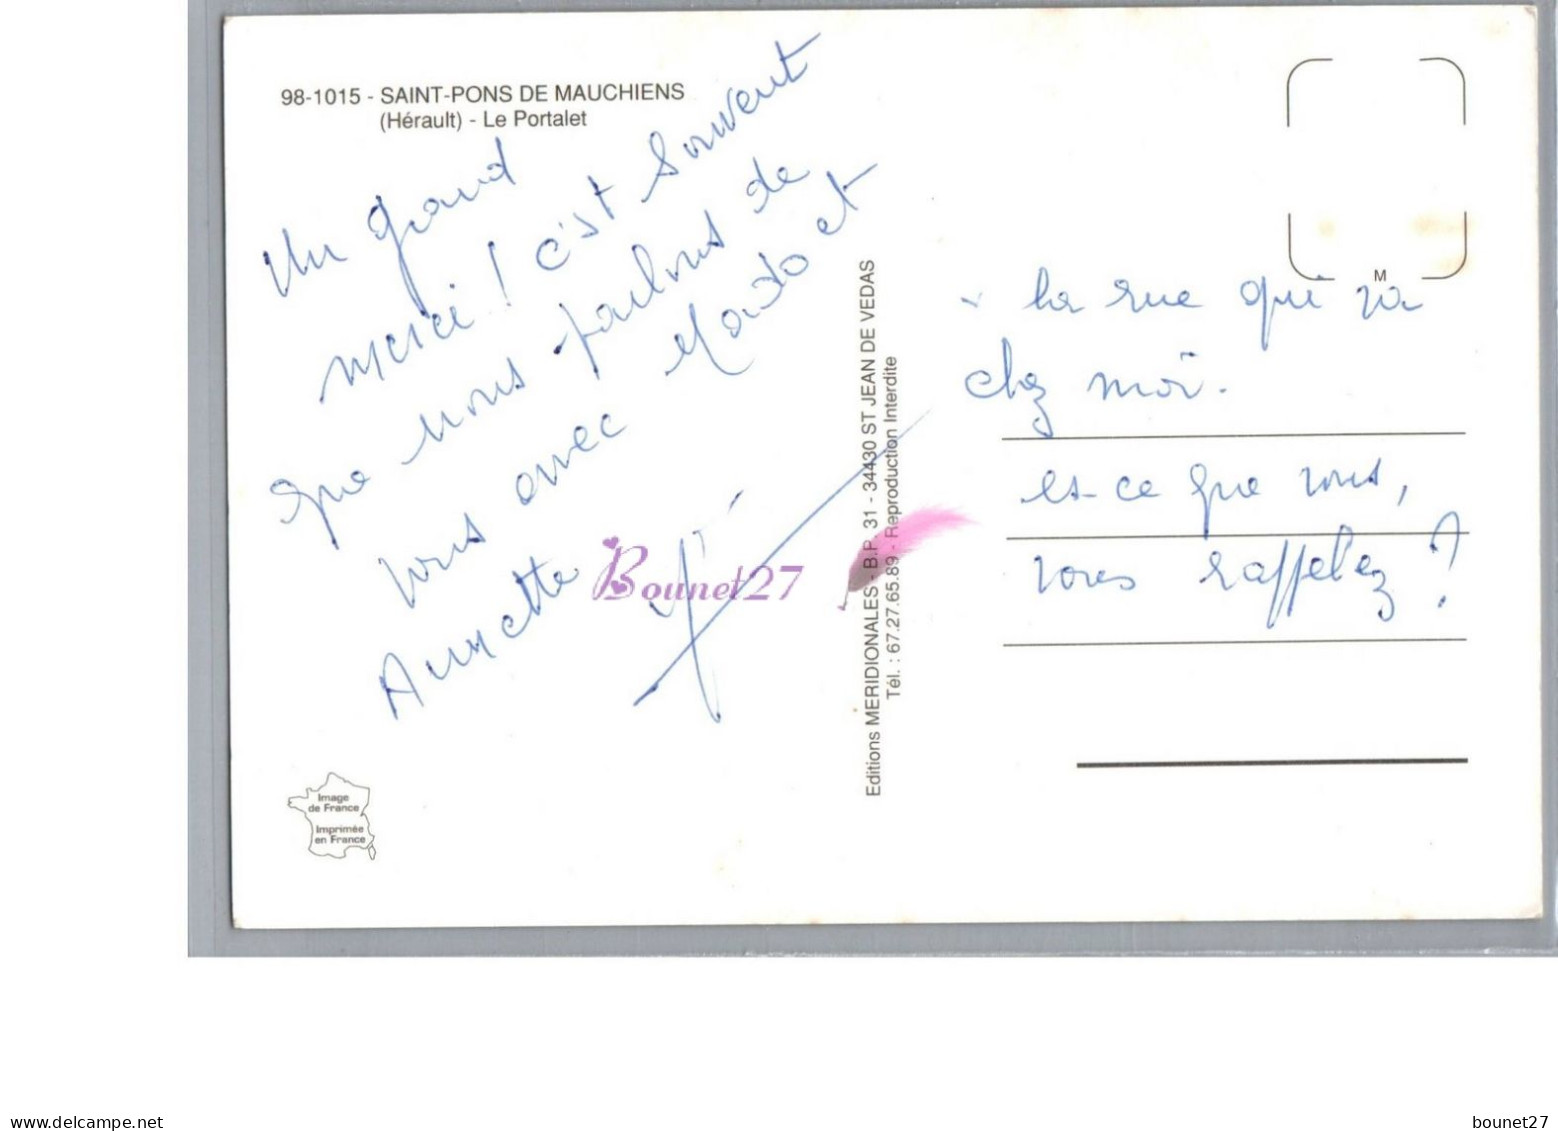 98-1015 - SAINT-PONS DE MAUCHIENS
(Hérault) - Le Portalet
Un grand
merci ! c'est souvent
que nous parlons de
vous avec Mado et
Annette
Bounet27
Image
de France
Imprimée
en France
Editions MERIDIONALES - B.P. 31 - 34430 ST JEAN DE VEDAS
Tél. : 67.27.65.89 - Reproduction Interdite
M
la rue qui va
chez moi.
est-ce que vous,
vous rappelez ?
www.delcampe.net
bounet27